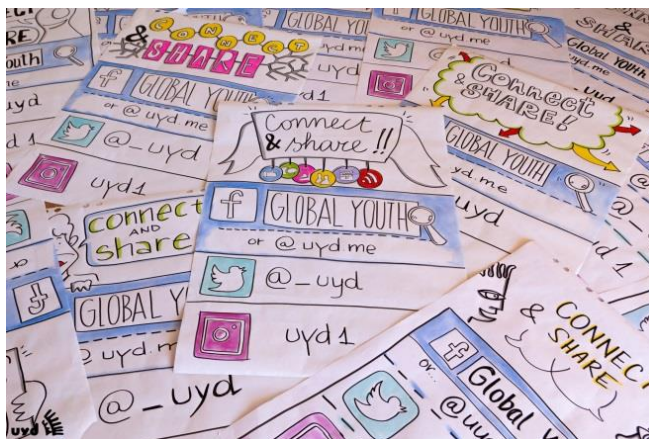 CONNECT
& SHARE
GLOBAL YOUTH
or @ uyd me
@_uyd
uyd1
Connect
& share !!
GLOBAL YOUTH
or @ uyd me
@_uyd
uyd1
Connect
& SHARE!
GLOBAL YOUTH
yd.me
uyd
connect
AND
share
GLOBAL Y
uyd.m
@_uyd
CONNECT
& SHARE
Global
or..
@uy
Global YOUTH
uyd.me
uyd